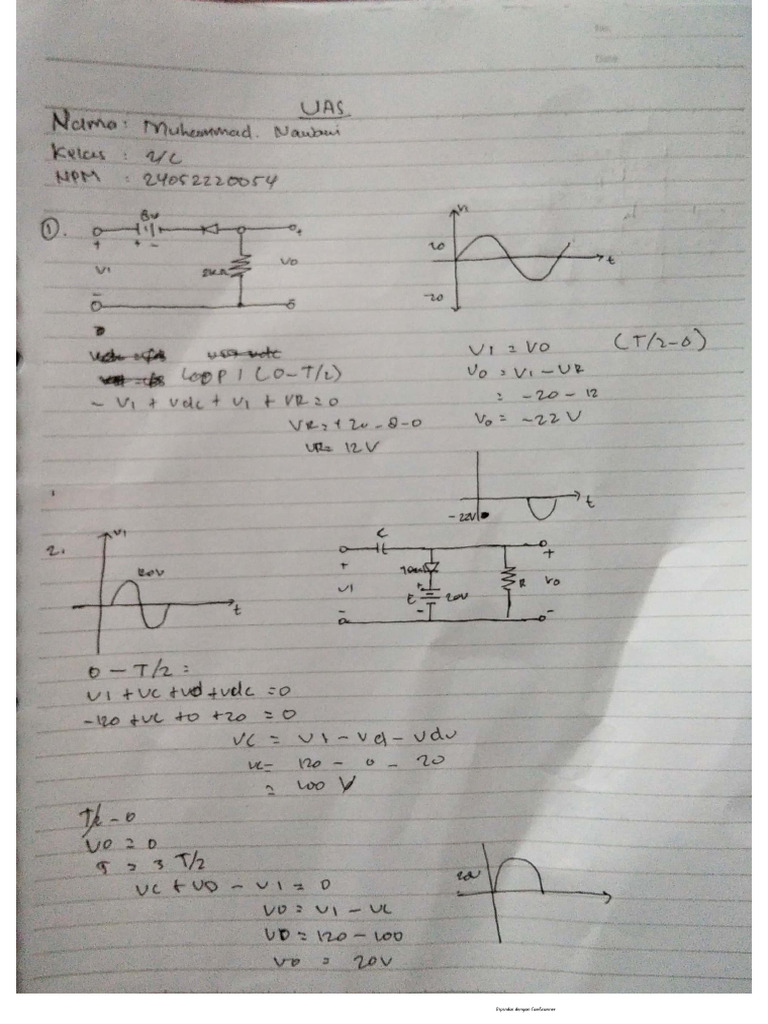 No.
Date
UAS
Nama: Muhammad. Nawawi
Kelas : 2/C
NPM : 24052220054
①.
8v
+ + - +
V1
2kΩ
Vo
-
V1
20
t
-20
LOOP 1 (0-T/2)
- V1 + Vdc + V1 + VR = 0
VR = +20 - 8 - 0
VR = 12V
V1 = VO (T/2-0)
Vo = V1 - VR
= -20 - 12
Vo = -22V
t
-22V
2.
V1
120V
t
C
+ +
V1
E
+
20V
-
R
Vo
- -
0 - T/2 :
V1 + VC + Vd + Vdc = 0
-120 + VC + 0 + 20 = 0
VC = V1 - Vd - Vdc
VC = 120 - 0 - 20
= 100 V
T/2 - 0
VO = 0
= 3 T/2
VC + VO - V1 = 0
VO = V1 - VC
VO = 120 - 100
VO = 20V
20V
Dipindai dengan CamScanner